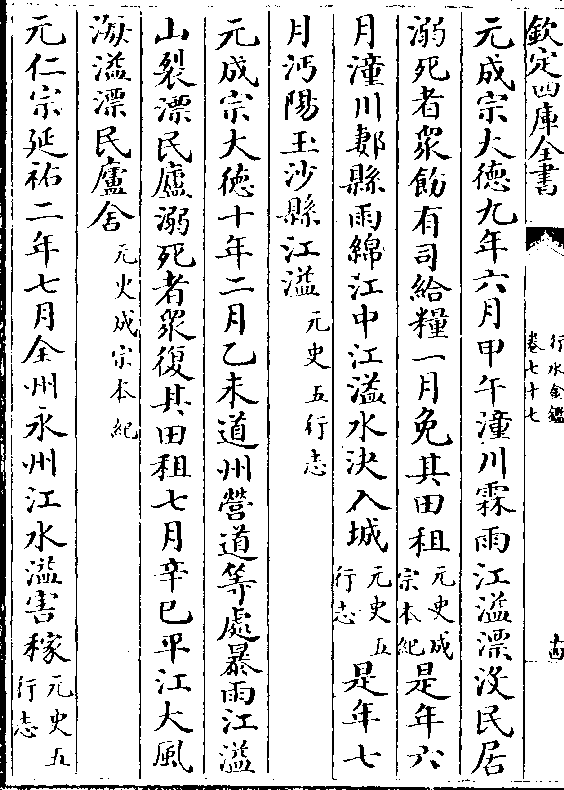 欽定四庫全書
行水金鑑
卷七十七
十四
元成宗大德九年六月甲午潼川霖雨江溢漂没民居
溺死者衆飭有司給糧一月免其田租元史成宗本紀是年六
月潼川郪縣雨綿江中江溢水決入城元史五行志是年七
月沔陽玉沙縣江溢元史五行志
元成宗大徳十年二月乙未道州營道等處暴雨江溢
山裂漂民廬溺死者衆復其田租七月辛巳平江大風
海溢漂民廬舍元史成宗本紀
元仁宗延祐二年七月全州永州江水溢害稼元史五行志